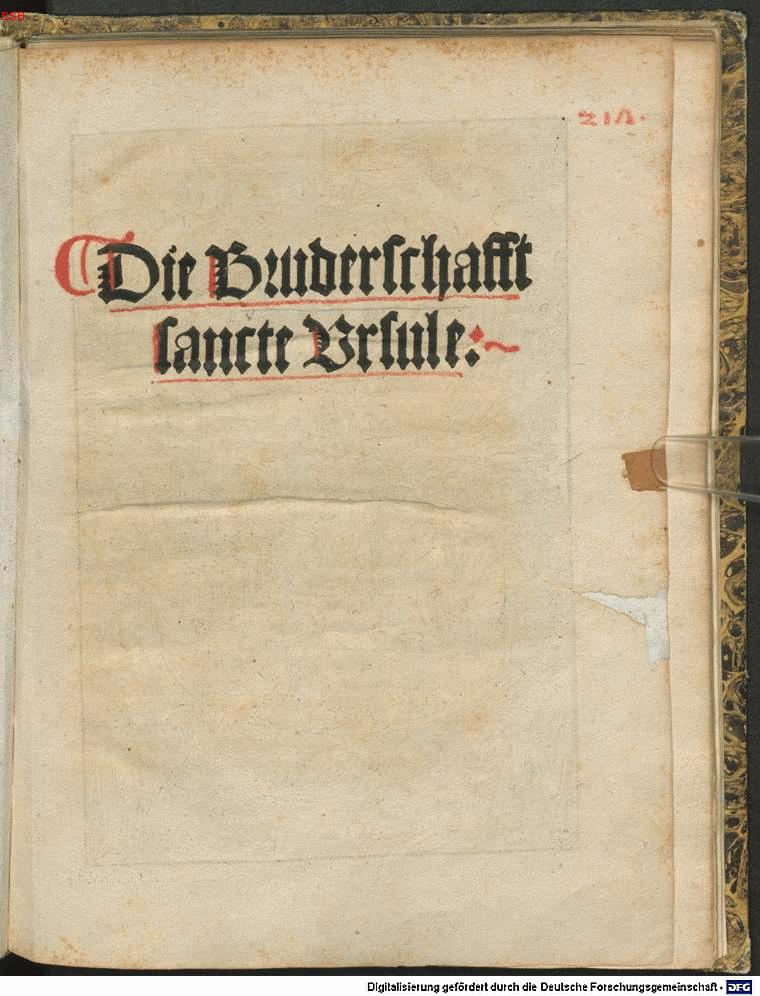 BSB
Die Bruderschafft
sancte Ursule:~
Digitalisierung gefördert durch die Deutsche Forschungsgemeinschaft - DFG